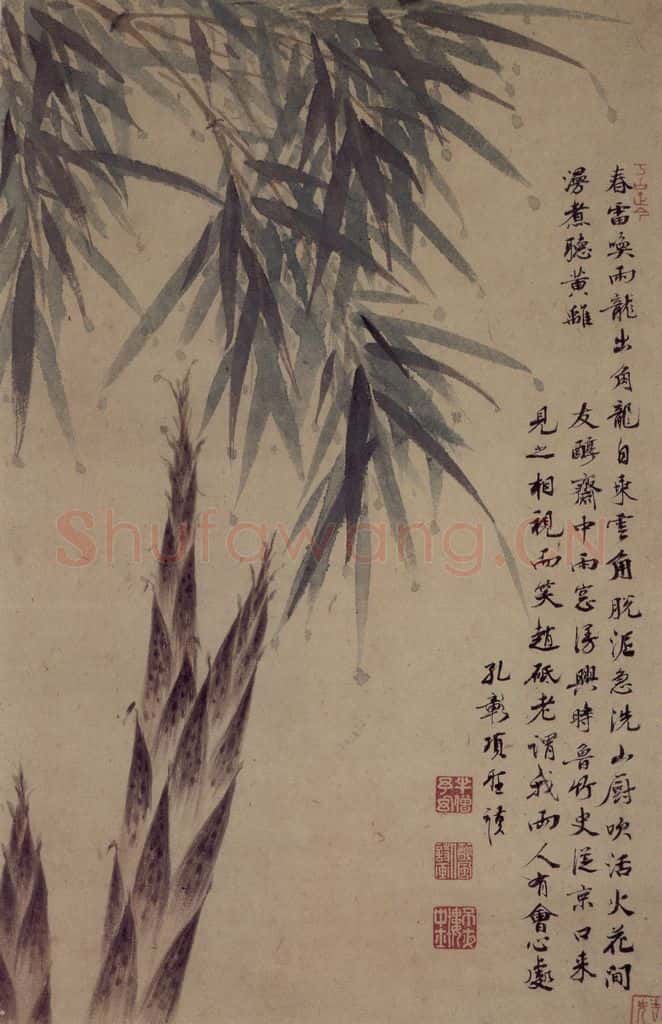 春雷喚雨龍出角龍自乘雲角脫泥急洗山厨吹活火花间
漫煮聽黃離
友醇齋中雨窓漫興時魯竹史從京口来
見之相視而笑趙砥老謂我兩人有會心處
孔彰項聖謨
Shufawang.CN